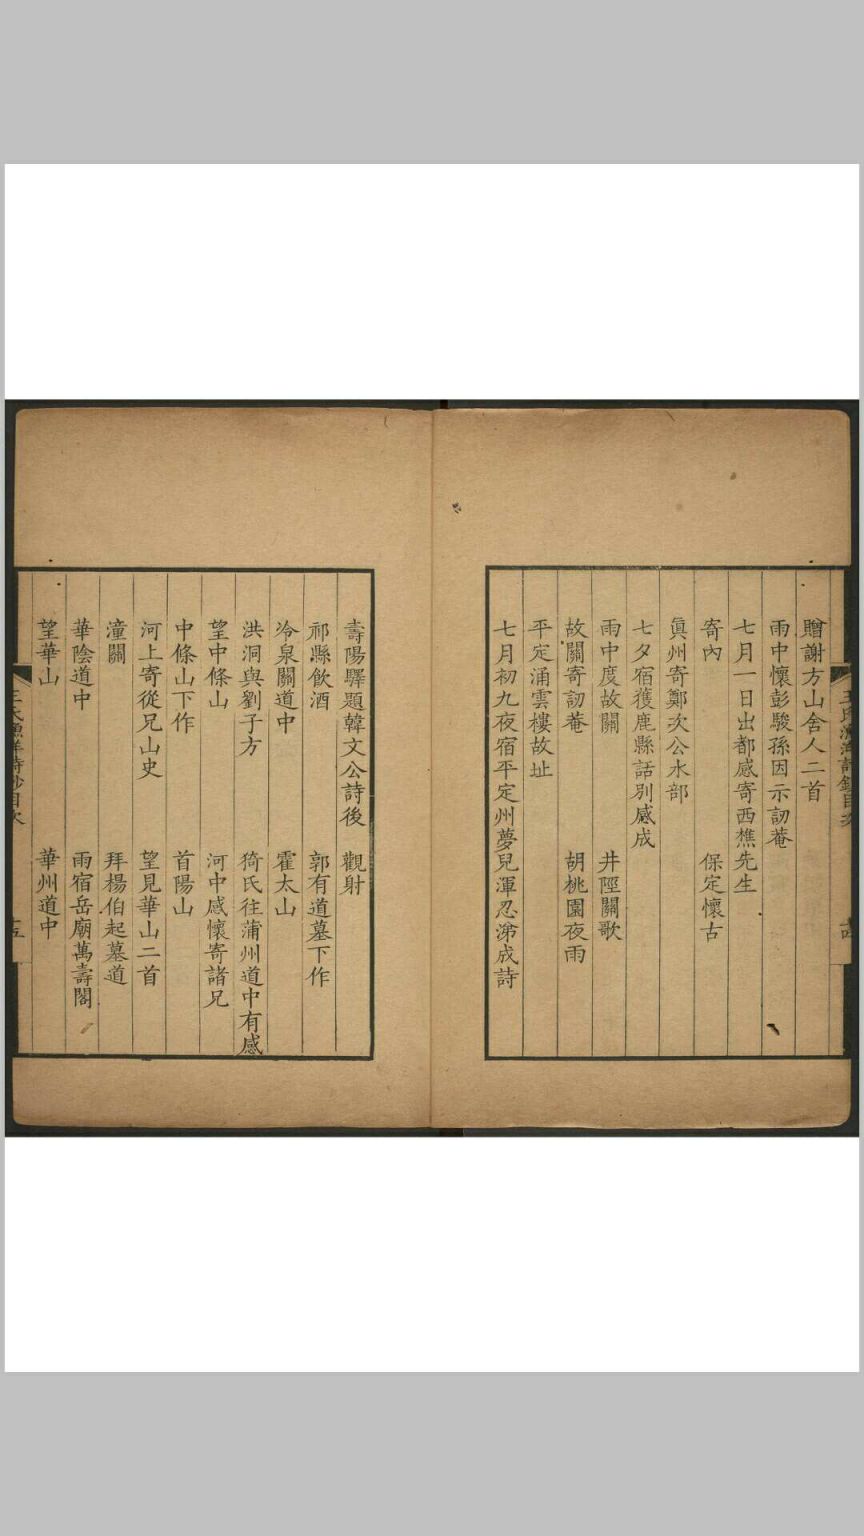 贈謝方山舍人二首
雨中懷彭駿孫因示訒菴
七月一日出都感寄西樵先生
寄內 保定懷古
眞州寄鄭次公水部
七夕宿獲鹿縣話別感成
雨中度故關 井陘關歌
故關寄訒菴 胡桃園夜雨
平定涌雲樓故址
七月初九夜宿平定州夢兒渾忍涕成詩
壽陽驛題韓文公詩後 觀射
祁縣飲酒 郭有道墓下作
冷泉關道中 霍太山
洪洞與劉子方 猗氏往蒲州道中有感
望中條山 河中感懷寄諸兄
中條山下作 首陽山
河上寄從兄山史 望見華山二首
潼關 拜楊伯起墓道
華陰道中 雨宿岳廟萬壽閣
望華山 華州道中